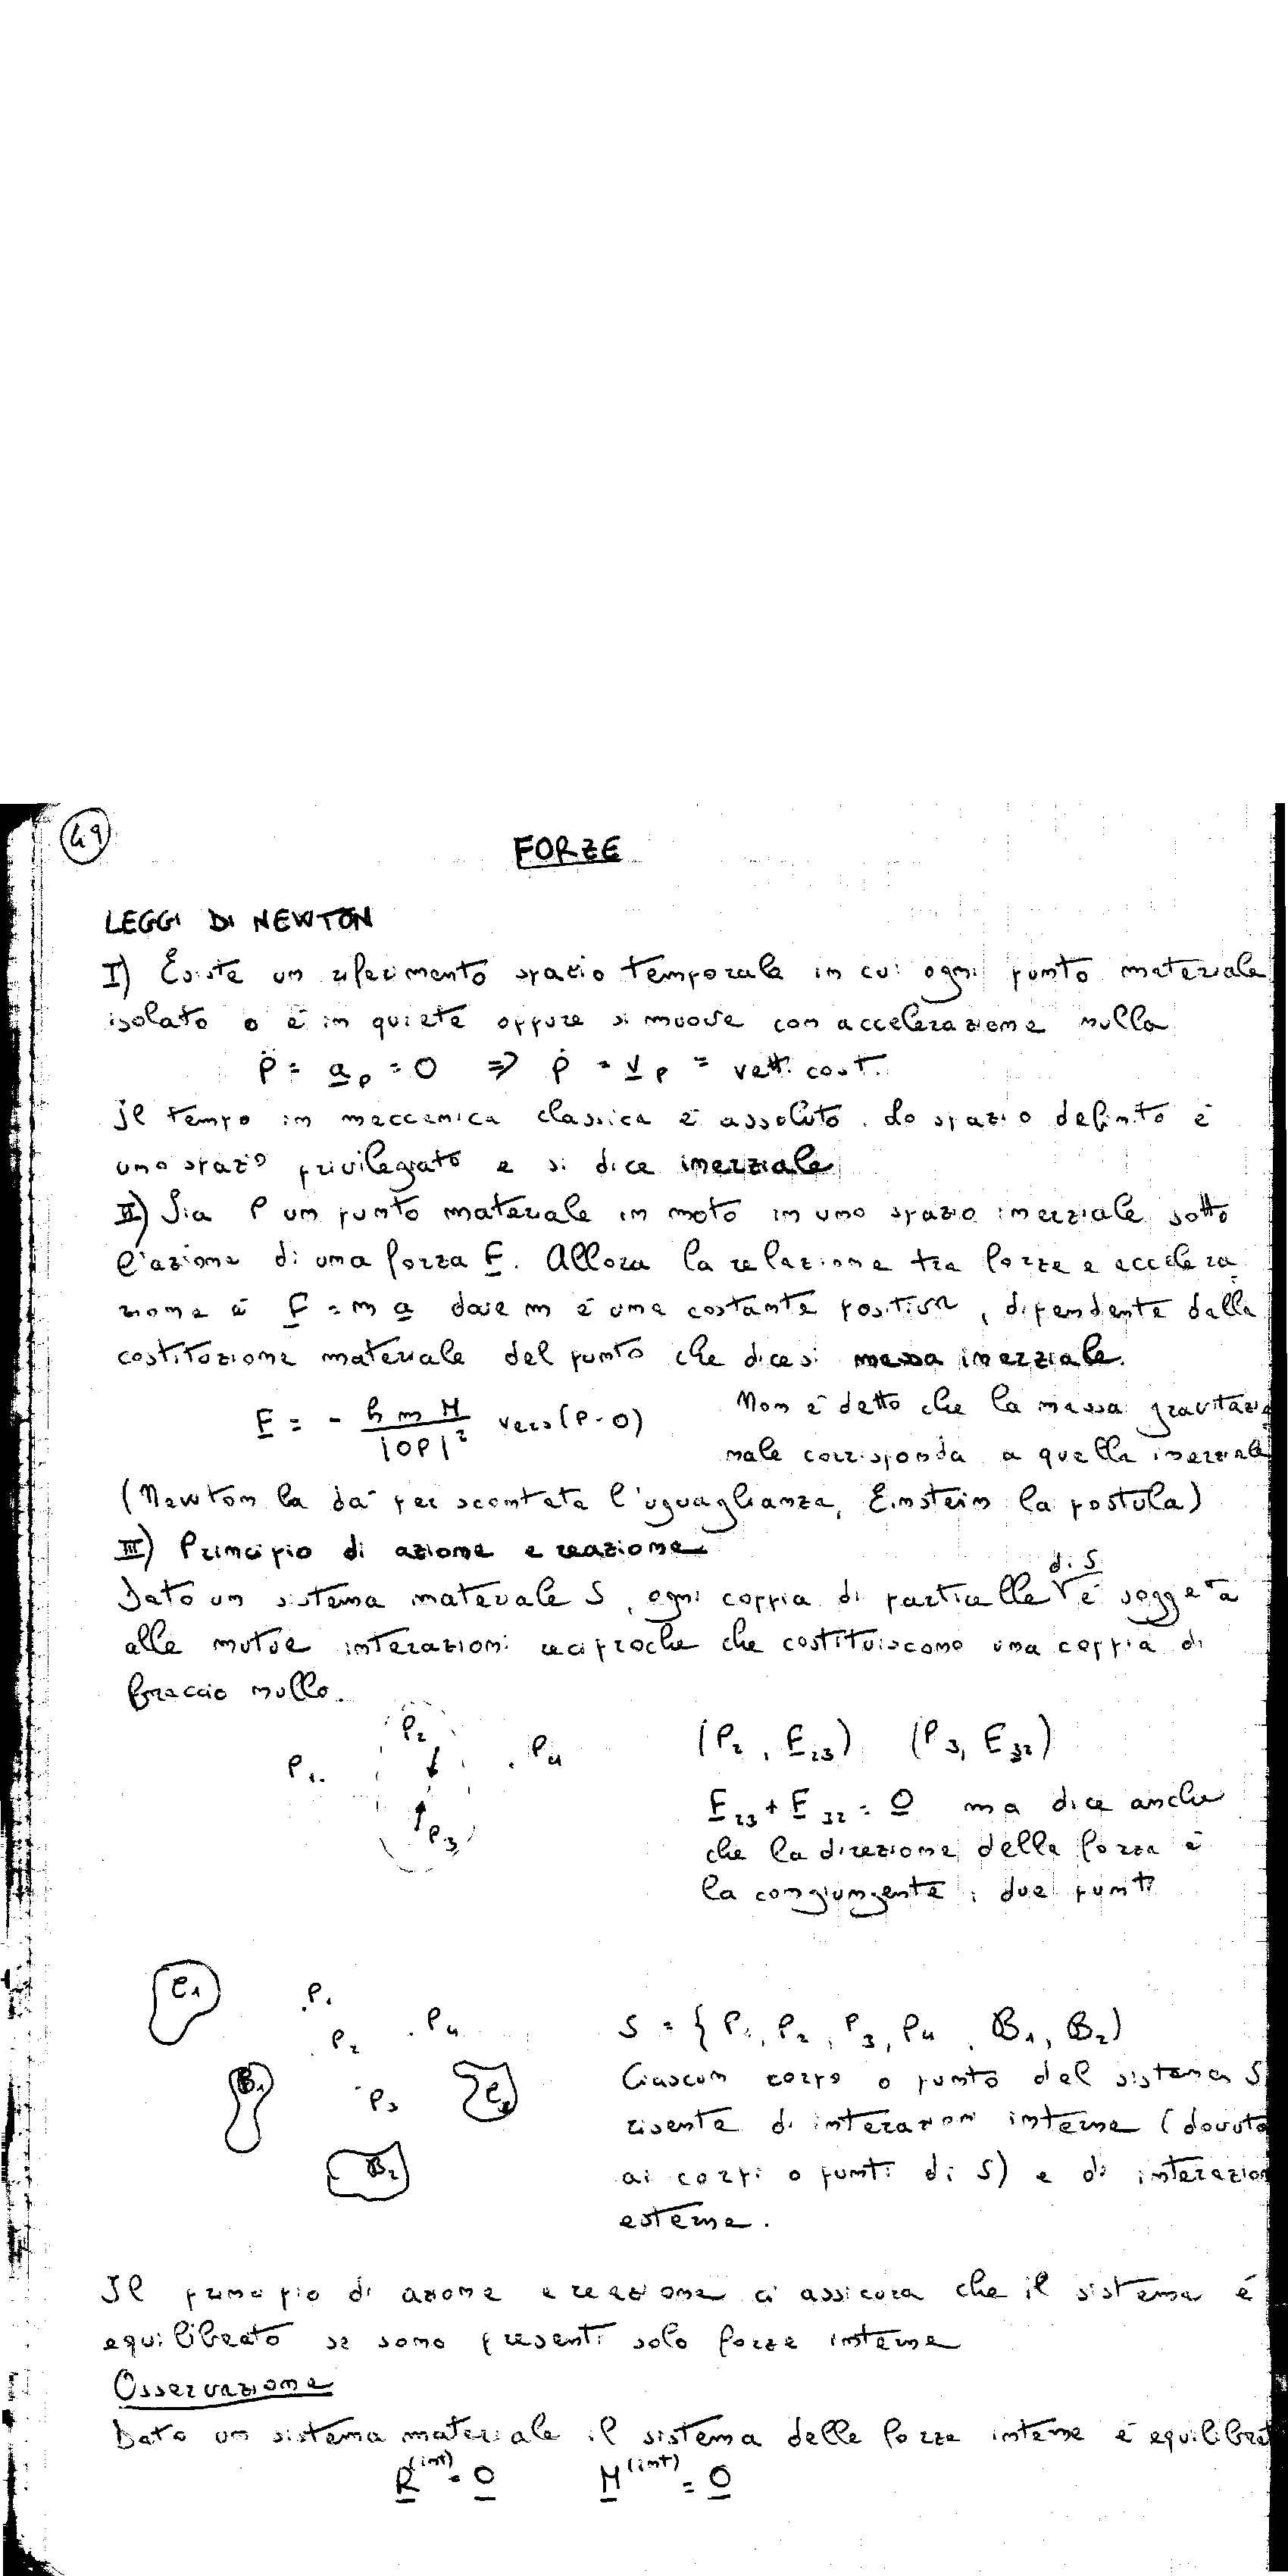 49
FORZE
LEGGI DI NEWTON
I) Esiste un riferimento spazio temporale in cui ogni punto materiale
isolato o è in quiete oppure si muove con accelerazione nulla
P̈ = a_P = 0 ⇒ Ṗ = v_P = vett. cost.
Il tempo in meccanica classica è assoluto. Lo spazio definito è
uno spazio privilegiato e si dice inerziale
II) Sia P un punto materiale in moto in uno spazio inerziale sotto
l'azione di una forza F. Allora la relazione tra forze e accelera
zione è F = m a dove m è una costante positiva, dipendente dalla
costituzione materiale del punto che dicesi massa inerziale.
F = - h m M / |OP|² vers(P-O) Non è detto che la massa gravitazio
nale corrisponda a quella inerziale
(Newton la dà per scontata l'uguaglianza, Einstein la postula)
III) Principio di azione e reazione
di S
Dato un sistema materiale S, ogni coppia di particelle è soggetta
alle mutue interazioni reciproche che costituiscono una coppia di
braccio nullo.
P₁ P₂ P₃ P₄ (P₂, F₂₃) (P₃, F₃₂)
F₂₃ + F₃₂ = 0 ma dice anche
che la direzione della forza è
la congiungente i due punti
C₁ P₁ P₂ P₃ P₄ B₁ B₂ C₂
S = { P₁, P₂, P₃, P₄, B₁, B₂ }
Ciascun corpo o punto del sistema S
risente di interazioni interne (dovute
ai corpi o punti di S) e di interazion
esterne.
Il principio di azione e reazione ci assicura che il sistema è
equilibrato se sono presenti solo forze interne
Osservazione
Dato un sistema materiale il sistema delle forze interne è equilibrat
R^(int) = 0 M^(int) = 0